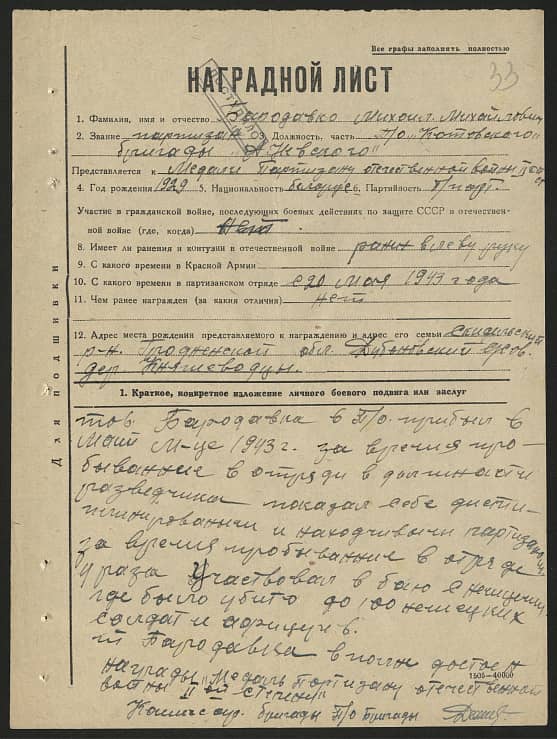 Все графы заполнить полностью
33
НАГРАДНОЙ ЛИСТ
1. Фамилия, имя и отчество Бародавко Михоил Михайлович
2. Звание партизан 3. Должность, часть П/о "Котовского"
бригады "А Невского"
Представляется к Медали Партизану отечественной войны II ст
4. Год рождения 1929 5. Национальность белорус 6. Партийность б/парт
Участие в гражданской войне, последующих боевых действиях по защите СССР в отечествен-
ной войне (где, когда) Нет
8. Имеет ли ранения и контузии в отечественной войне ранен в леву руку
9. С какого времени в Красной Армии
10. С какого времени в партизанском отряде с 20 мая 1943 года
11. Чем ранее награжден (за какия отличия) нет
12. Адрес места рождения представляемого к награждению и адрес его семьи Скидельский
р-н. Гродненской обл. Дубновский с/сов.
дер. Княжеводцы.
Для подшивки
1. Краткое, конкретное изложение личного боевого подвига или заслуг
тов. Бародавка в П/о. прибыл в
Май м-це 1943 г. за время про-
быванние в отряди в должности
разведчика показал себе дисти-
плинированим и находчивым партизаном
за время пробыванние в отряде
4 раза Участвовал в бою с немцами
где было убито до 100 немецких
солдат и афицеров.
т Бародавка вполне достоен
награды "Медаль Портизану отечественной
войны II ой степени"
1505—40000
бригады П/о бригады